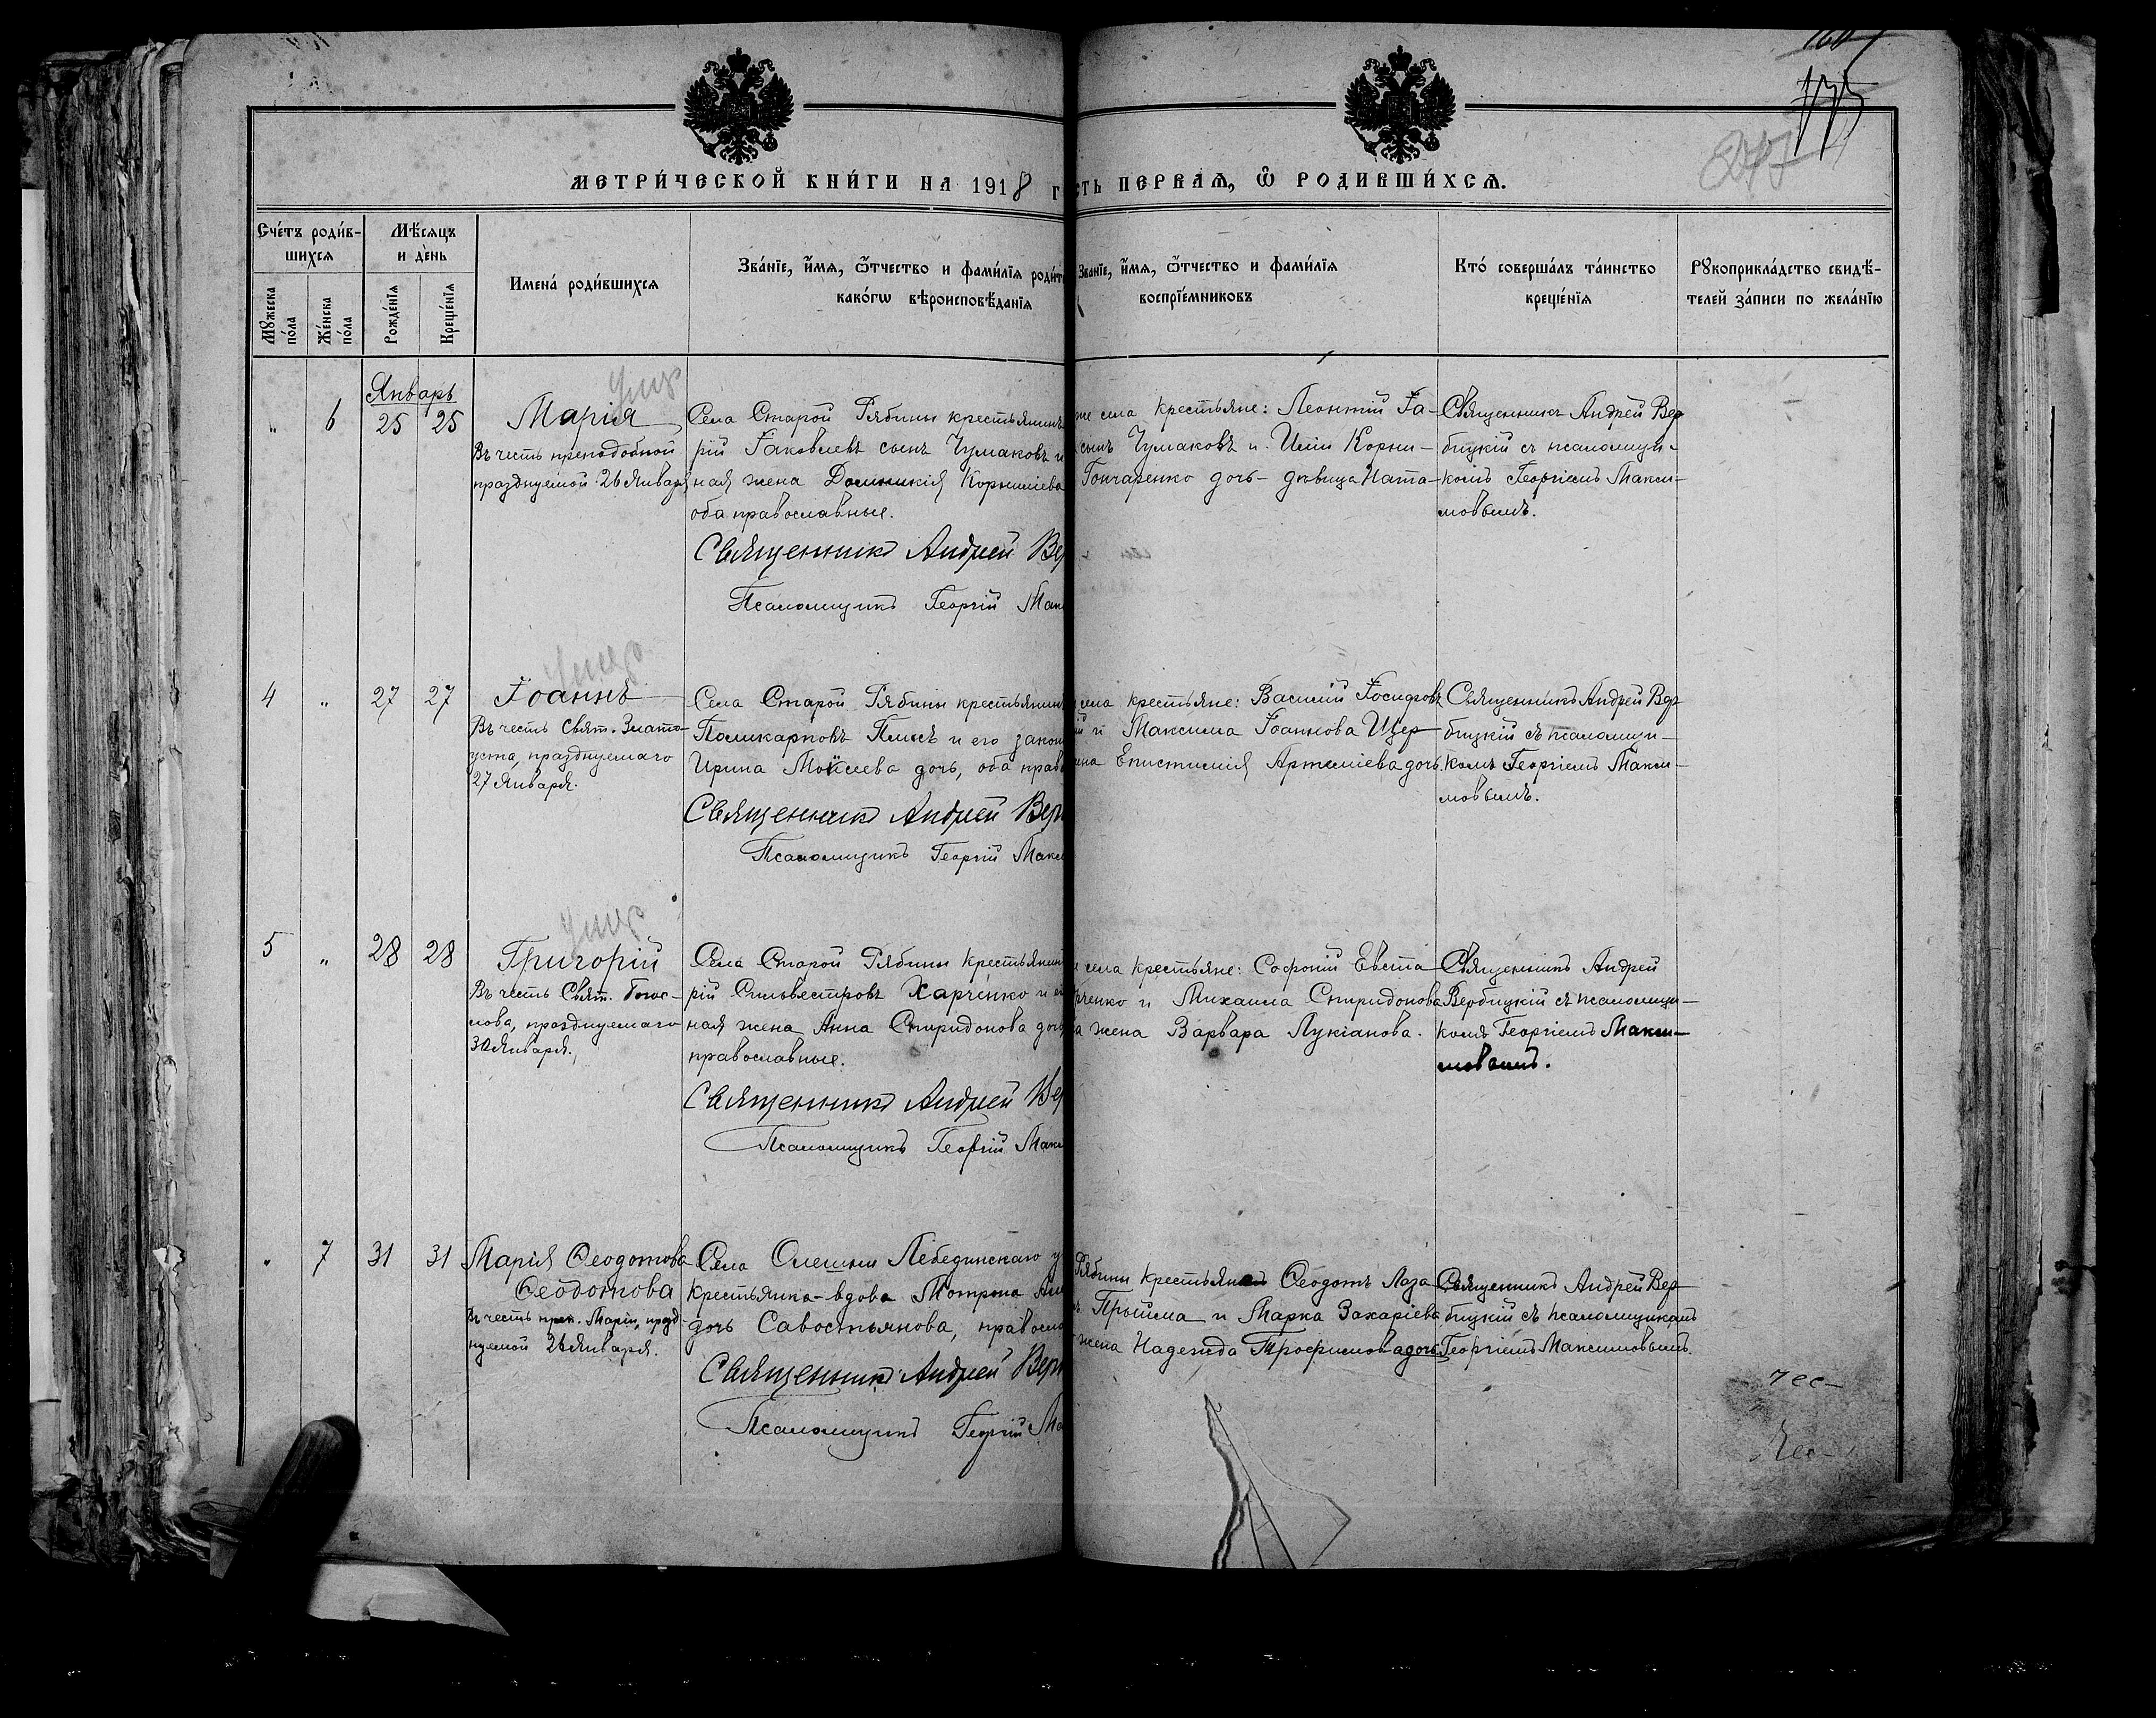 175
МЕТРИ́ЧЕСКОЙ КНИ́ГИ НА 1918 г
СТЬ ПЕРВАѦ, Ѡ҆ РОДИВШИ́ХСѦ.
Сче́тъ роди́в-
шихсѧ
Мꙋжеска по́ла
Же́нска по́ла
Мѣ́сѧцъ
и де́нь
Рожде́нїѧ
Креще́нїѧ
Имена́ роди́вшихсѧ
Зва́нїе, и҆́мѧ, ѻ҆́тчество и фами́лїѧ роди́т
како́гѡ вѣроисповѣ́данїѧ
Зва́нїе, и҆́мѧ, ѻ҆́тчество и фами́лїѧ
воспрїе́мниковъ
Кто́ соверша́лъ та́инство
креще́нїѧ
Рꙋкоприкла́дство свидѣ́-
телей за́писи по жела́нїю
Январь
" 6 25 25
Марія
Въ честь преподобной
празднуемой 26 Января
Села Старой Рябины крестьянинъ
рій Іаковлевъ сынъ Чумаковъ и
ная жена Домникія Корниліева
оба православные.
Священникъ Андрей Вер
Псаломщикъ Георгій Мак
же села крестьяне: Леонтій Іа-
сынъ Чумаковъ и Иліи Корни-
Гончаренко дочь - дѣвица Ната-
Священникъ Андрей Вер
бицкій съ псаломщи-
комъ Георгіемъ Макси-
мовымъ.
4 " 27 27
Іоаннъ
Въ честь Свят. Злато-
уста, празднуемаго
27 Января.
Села Старой Рябины крестьянинъ
Поликарповъ Плисъ и его закон
Ирина Моѵсеева дочь, оба прав
Священникъ Андрей Вер
Псаломщикъ Георгій Макс
села крестьяне: Василій Іосифовъ
и Максима Іоаннова Щер-
Епистимія Артеміева дочь.
Священникъ Андрей Вер
бицкій съ псаломщи-
комъ Георгіемъ Макси-
мовымъ.
5 " 28 28
Григорій
Въ честь Свят. Богос-
лова, празднуемаго
30 Января.
Села Старой Рябины крестьянинъ
рій Сильвестровъ Харченко и е
ная жена Анна Спиридонова дочь
православные.
Священникъ Андрей Вер
Псаломщикъ Георгій Макс
села крестьяне: Софроній Евста-
рченко и Михаила Спиридонова
жена Варвара Лукіанова.
Священникъ Андрей
Вербицкій съ псаломщи-
комъ Георгіемъ Макси-
мовымъ.
" 7 31 31
Марія Ѳеодотова
Ѳеодотова
Въ честь преп. Маріи, празд-
нуемой 26 Января.
Села Олешни Лебединскаго у
крестьянка-вдова Мотрона
дочь Савостьянова, правосла
Священникъ Андрей Верб
Псаломщикъ Георгій Ма
Рябины крестьяне Ѳеодотъ Лаза
Прыйма и Марка Захаріева
жена Надежда Трофимова дочь.
Священникъ Андрей Вер
бицкій съ псаломщикомъ
Георгіемъ Максимовымъ.